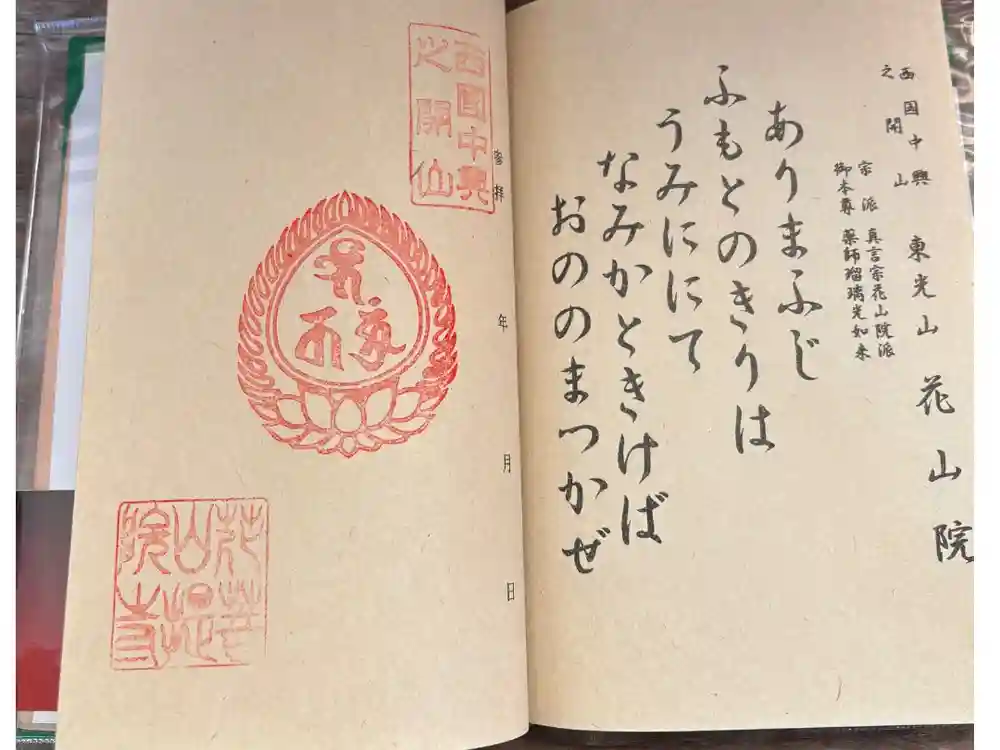 西国中興
之開山
東光山 花山院
宗派 真言宗花山院派
御本尊 薬師瑠璃光如来
ありまふじ
ふもとのきりは
うみににて
なみかときけば
おののまつかぜ
西國中興
之開山
参拝 年 月 日